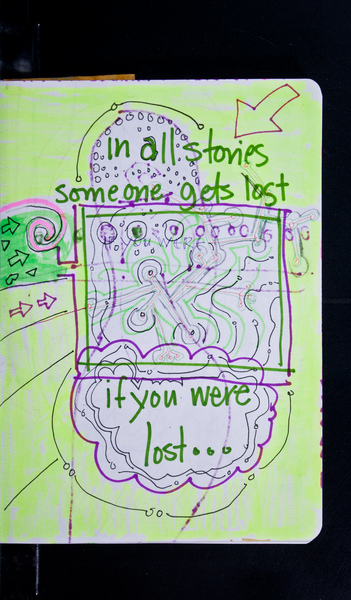 in all stories
someone gets lost
if you were
if you were
lost...